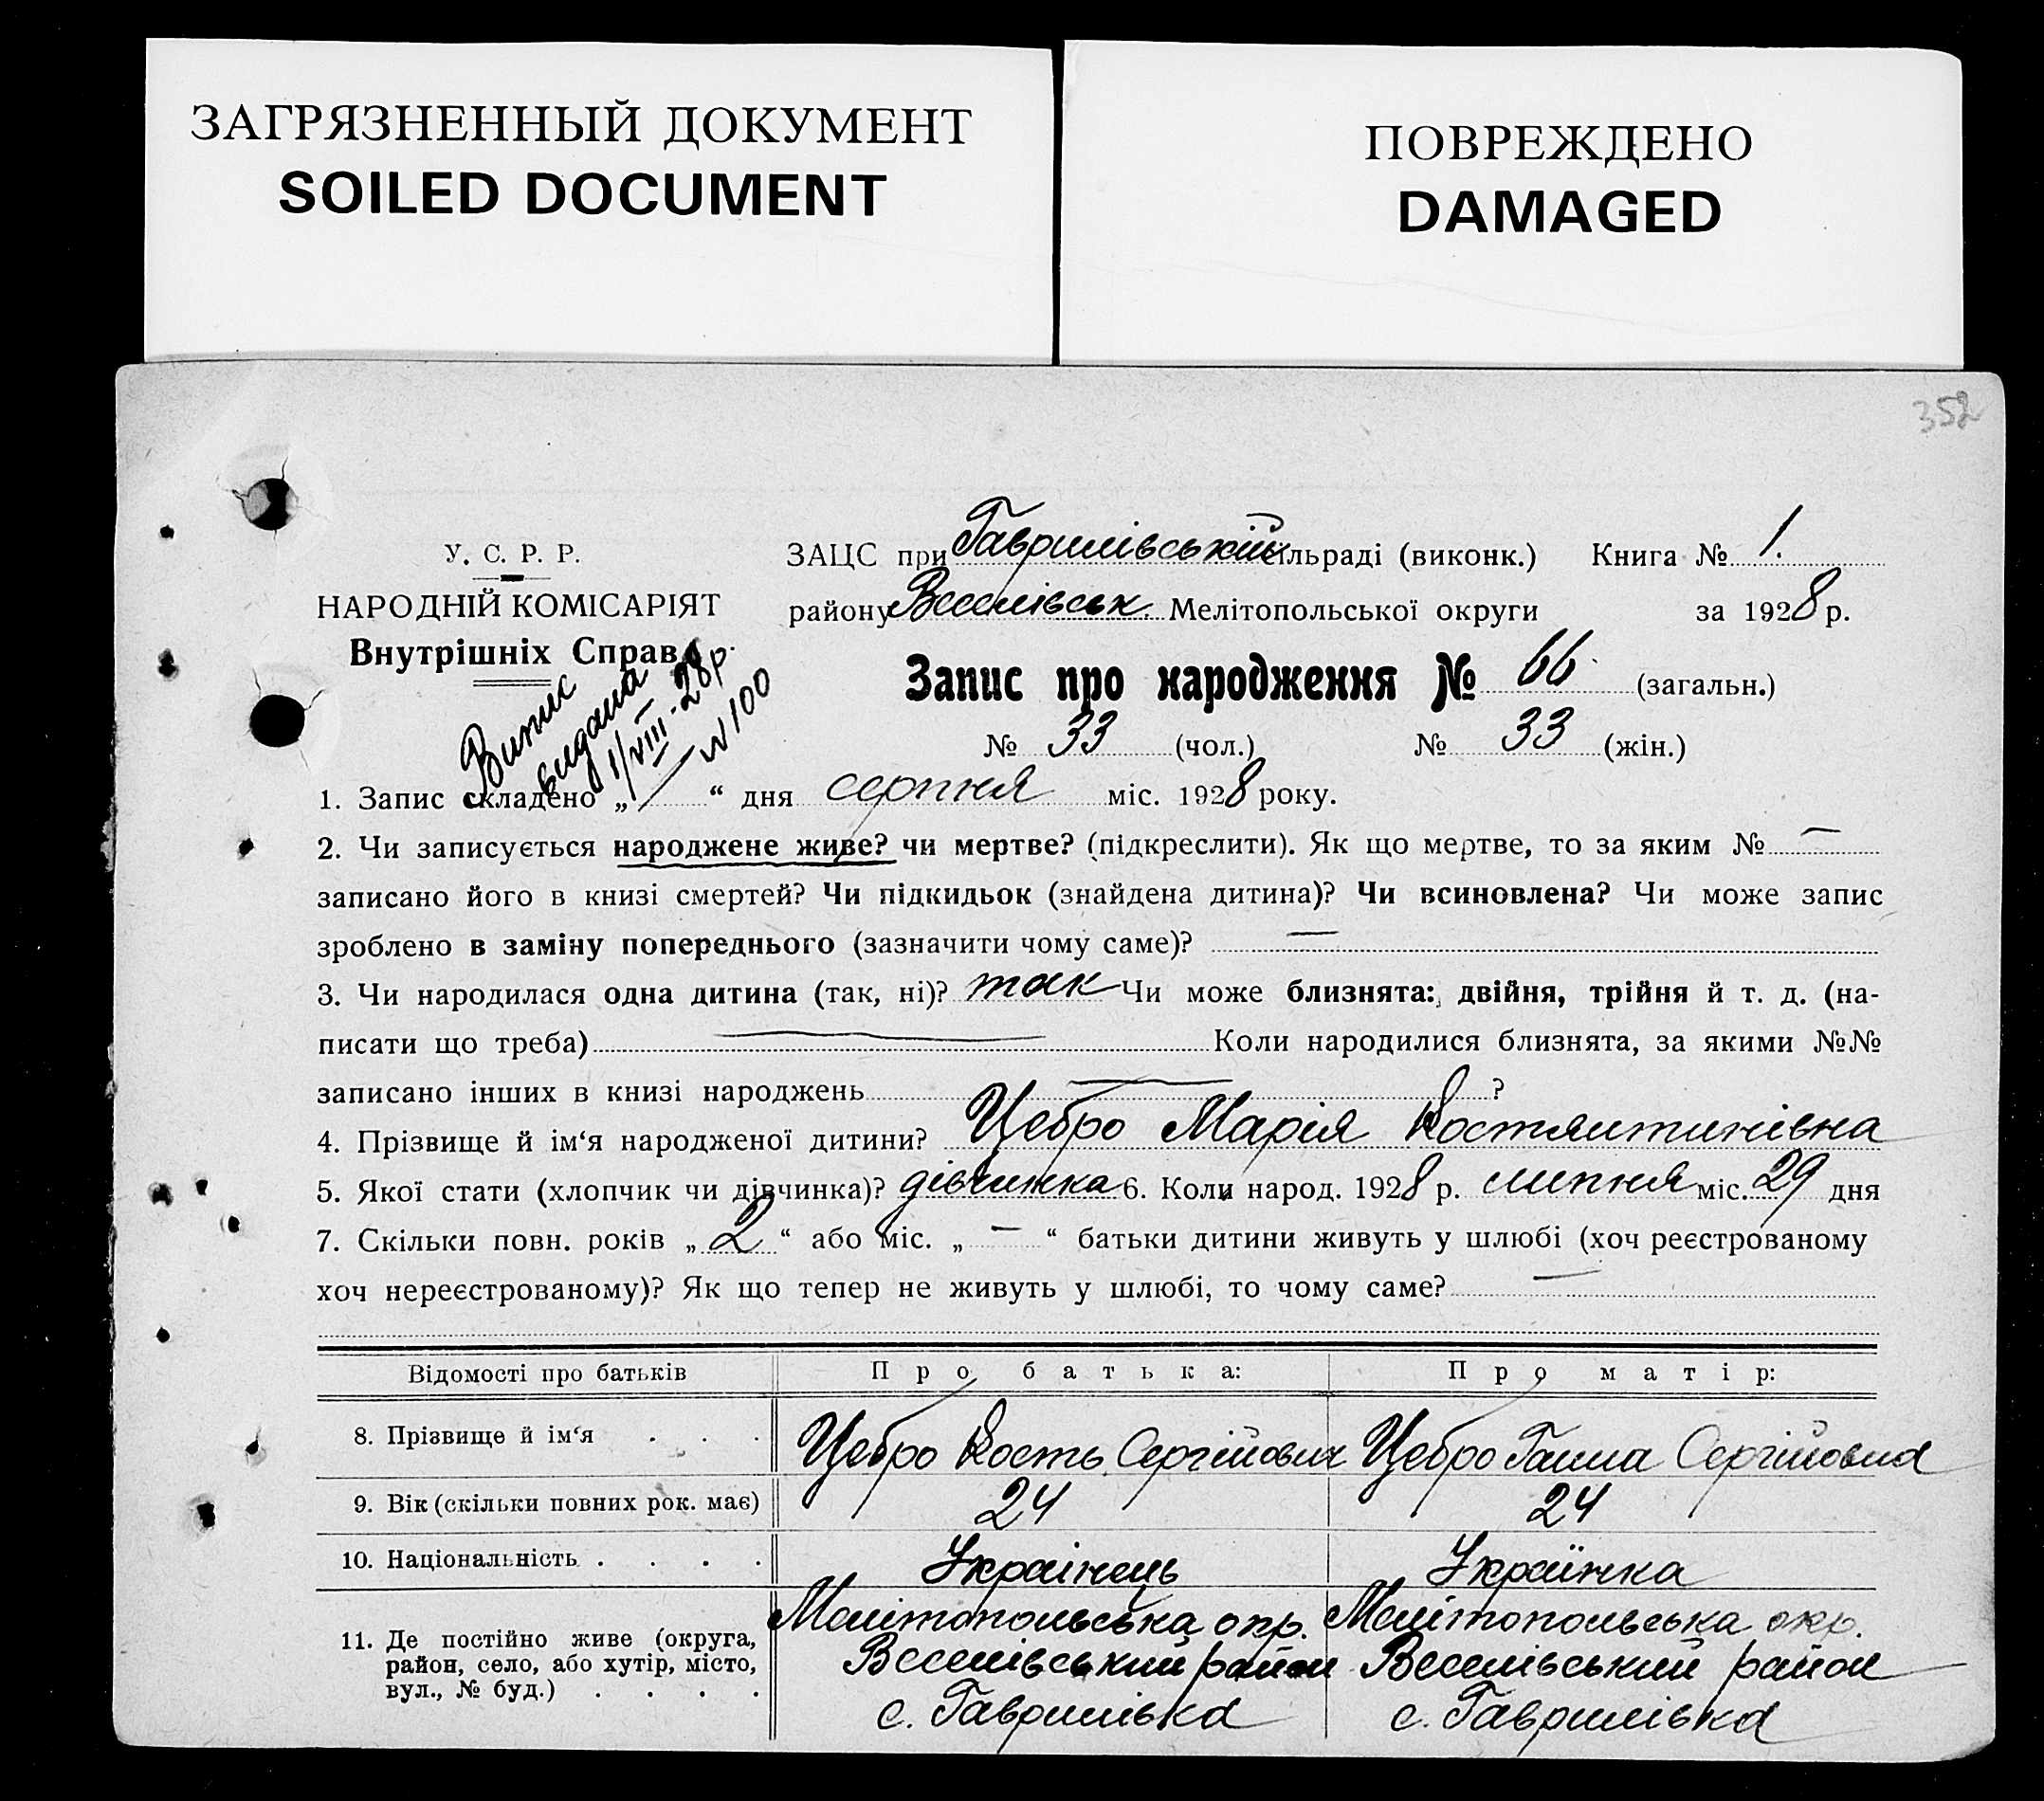 ЗАГРЯЗНЕННЫЙ ДОКУМЕНТ
SOILED DOCUMENT
ПОВРЕЖДЕНО
DAMAGED
352
У. С. Р. Р.
НАРОДНІЙ КОМІСАРІЯТ
Внутрішніх Справ
Випис
видана
1/VIII-28р.
N 100
ЗАЦС при Гаврилівській сільраді (виконк.) Книга № 1.
району Веселівськ. Мелітопольської округи за 1928 р.
Запис про народження № 66 (загальн.)
№ 33 (чол.) № 33 (жін.)
1. Запис складено „ 1 “ дня серпня міс. 1928 року.
2. Чи записується народжене живе? чи мертве? (підкреслити). Як що мертве, то за яким № —
записано його в книзі смертей? Чи підкидьок (знайдена дитина)? Чи всиновлена? Чи може запис
зроблено в заміну попереднього (зазначити чому саме)? —
3. Чи народилася одна дитина (так, ні)? так Чи може близнята: двійня, трійня й т. д. (на-
писати що треба) — Коли народилися близнята, за якими №№
записано інших в книзі народжень — ?
4. Прізвище й ім‘я народженої дитини? Цебро Марія Костянтинівна
5. Якої стати (хлопчик чи дівчинка)? дівчинка 6. Коли народ. 1928 р. липня міс. 29 дня
7. Скільки повн. років „ 2 “ або міс. „ — “ батьки дитини живуть у шлюбі (хоч реєстрованому
хоч нереєстрованому)? Як що тепер не живуть у шлюбі, то чому саме? —
Відомості про батьків Про батька: Про матір:
8. Прізвище й ім‘я . . . Цебро Кость Сергійович Цебро Ганна Сергійовна
9. Вік (скільки повних рок. має) 24 24
10. Національність . . . . Українець Українка
11. Де постійно живе (округа, Мелітопольська окр. Мелітопольська окр.
район, село, або хутір, місто, Веселівський район Веселівський район
вул., № буд.) . . . . с. Гаврилівка с. Гаврилівка